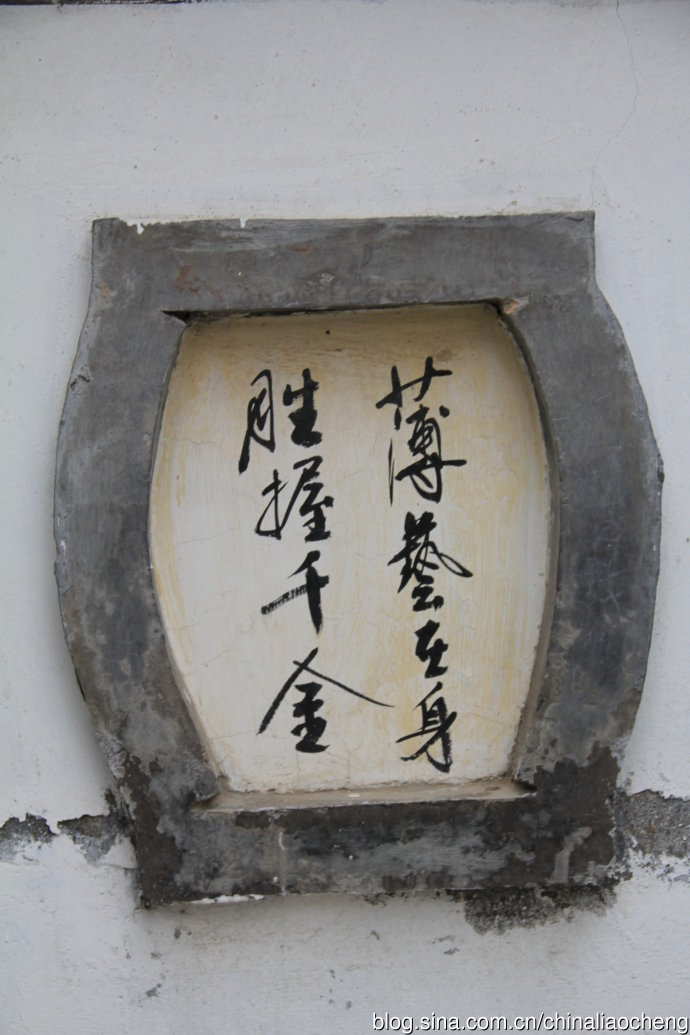 薄藝在身
胜握千金
blog.sina.com.cn/chinaliaocheng